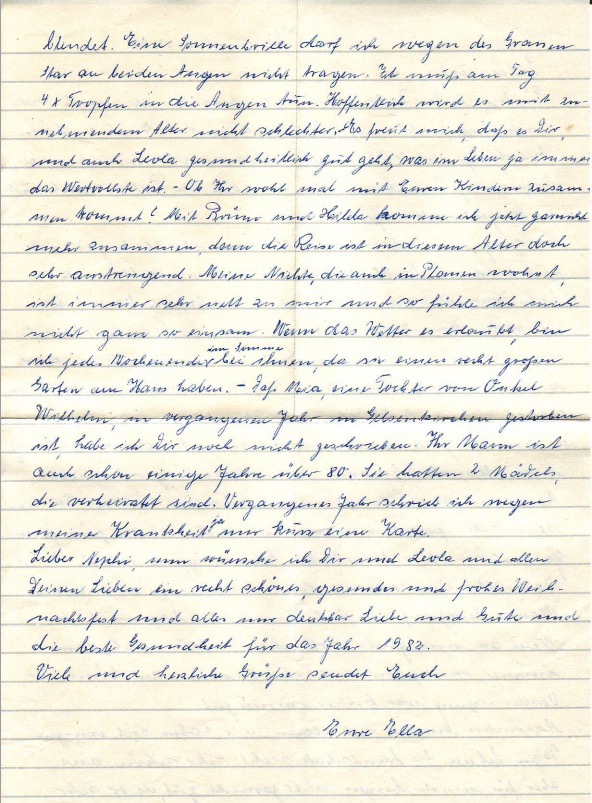 blendet. Eine Sonnenbrille darf ich wegen des Grauen
Star an beiden Augen nicht tragen. Ich muß am Tag
4 x Tropfen in die Augen tun. Hoffentlich wird es mit zu-
nehmendem Alter nicht schlechter. Es freut mich, daß es Dir,
und auch Levla gesundheitlich gut geht, was im Leben ja immer
das Wertvollste ist. - Ob Ihr wohl mal mit Euren Kindern zusam-
men kommt? Mit Bruno und Hilda komme ich jetzt garnicht
mehr zusammen, denn die Reise ist in diesem Alter doch
sehr anstrengend. Meine Nichte, die auch in Plauen wohnt,
ist immer sehr nett zu mir und so fühle ich mich
nicht ganz so einsam. Wenn das Wetter es erlaubt, bin
ich jedes Wochenende im Sommer bei ihnen, da sie einen recht großen
Garten am Haus haben. - Daß Mia, eine Tochter von Onkel
Wilhelm, im vergangenen Jahr in Gelsenkirchen gestorben
ist, habe ich Dir noch nicht geschrieben. Ihr Mann ist
auch schon einige Jahre über 80. Sie hatten 2 Mädels,
die verheiratet sind. Vergangenes Jahr schrieb ich wegen
meiner Krankheit ja nur kurz eine Karte.
Lieber Nephi, nun wünsche ich Dir und Levla und allen
Deinen Lieben ein recht schönes, gesundes und frohes Weih-
nachtsfest und alles nur denkbar Liebe und Gute und
die beste Gesundheit für das Jahr 1982.
Viele und herzliche Grüße sendet Euch
Eure Ella